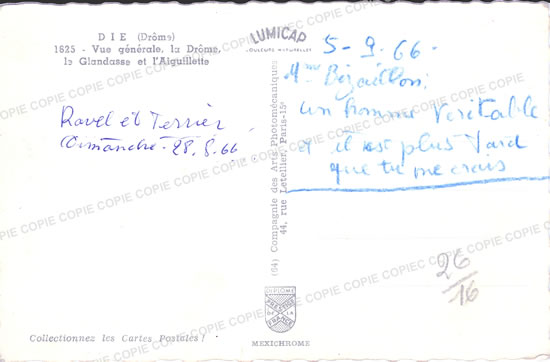 DIE (Drôme)
1825 - Vue générale, la Drôme,
la Glandasse et l'Aiguillette
Ravel et Terrier
Dimanche - 28.8.66
LUMICAP
COULEURS NATURELLES
(64) Compagnie des Arts Photomécaniques
44, rue Letellier, Paris-15e
5-9-66-
Mme Bézaillon:
un homme véritable
et il est plus tard
que tu ne crois
26
16
DIPLOME
PRESTIGE
DE LA
FRANCE
MEXICHROME
Collectionnez les Cartes Postales !
COPIE COPIE COPIE COPIE COPIE COPIE